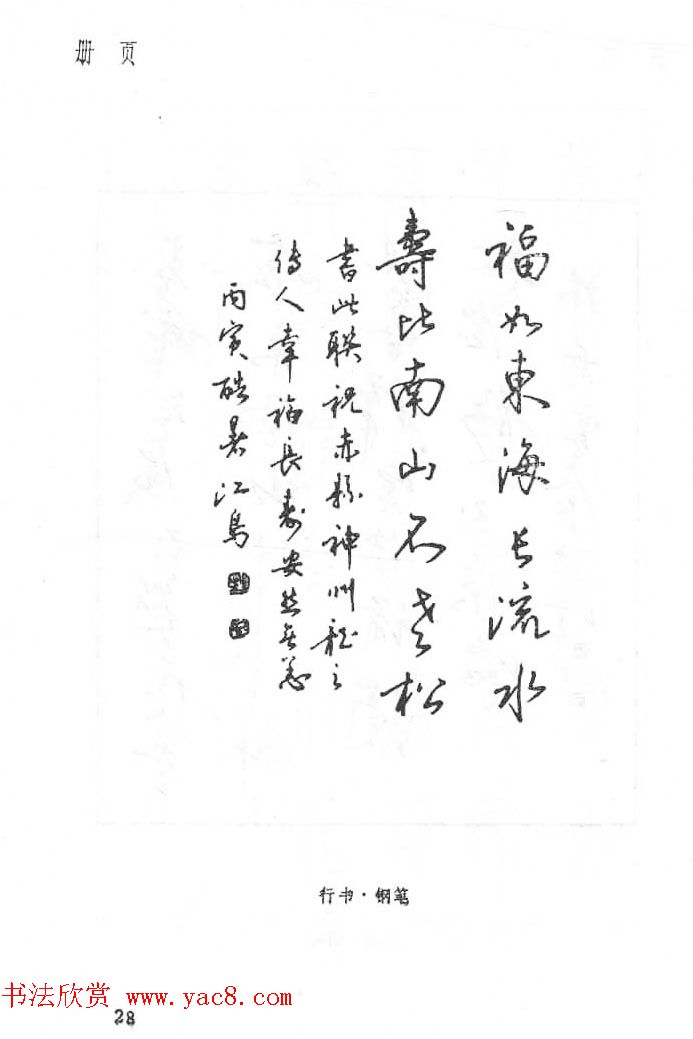 册 页
福如東海長流水
壽比南山不老松
書此联祝赤县神州龍之
傳人幸福長寿安然無恙
丙寅酷暑江鳥
行书·钢笔
书法欣赏 www.yac8.com
28